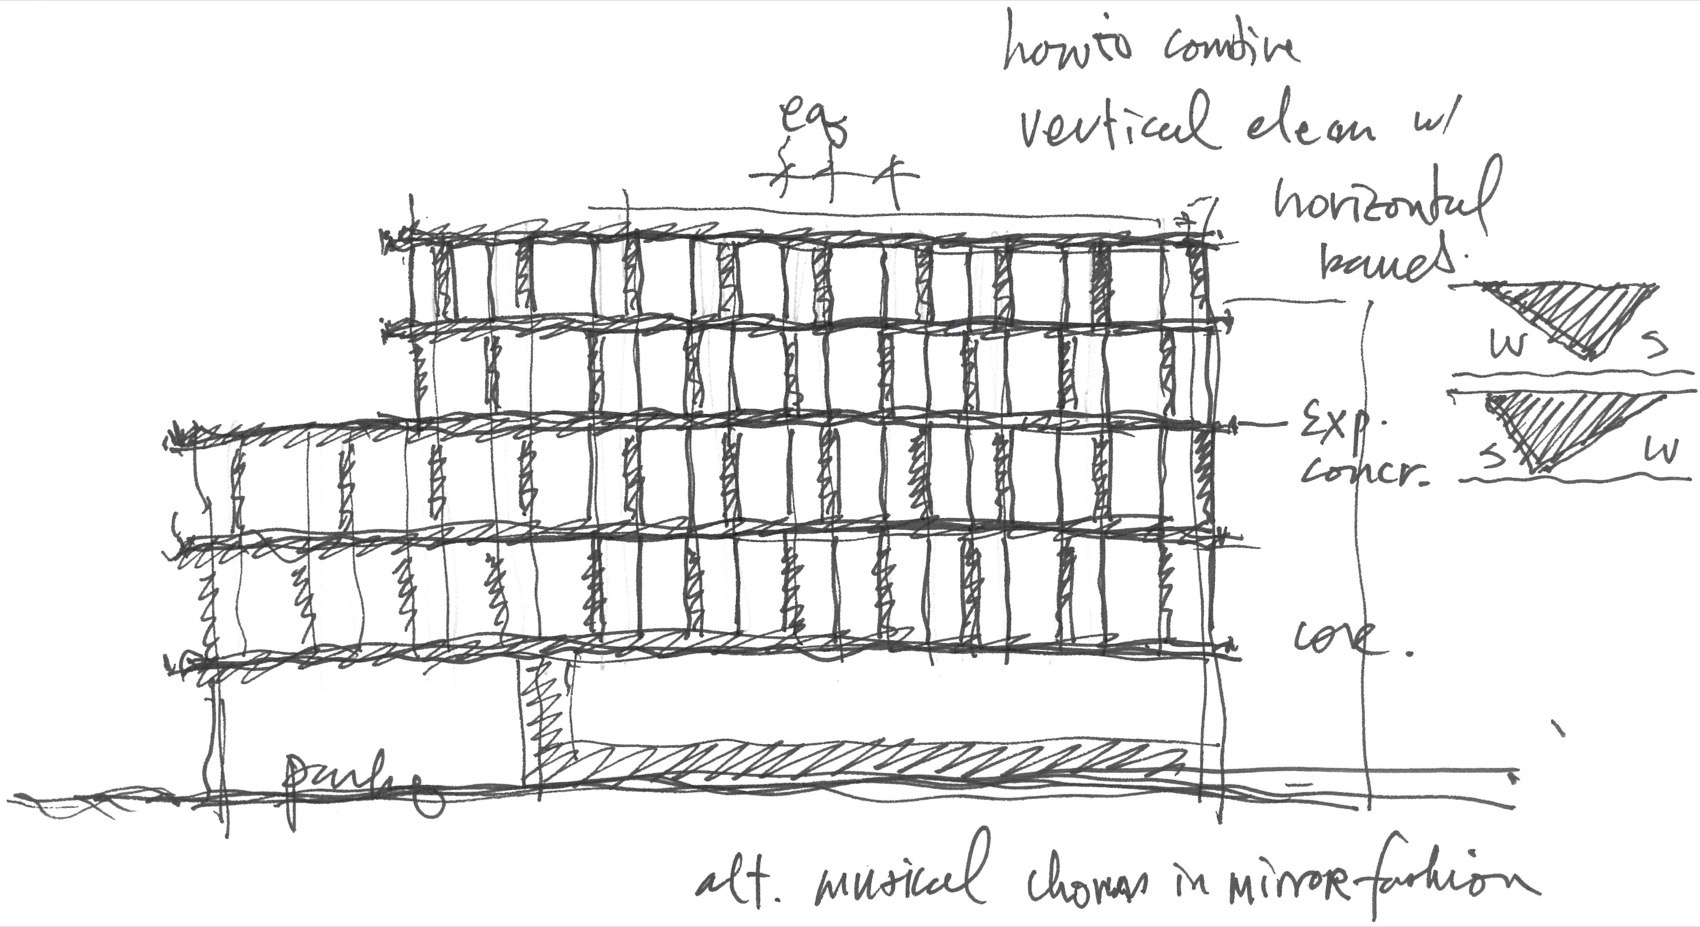 how to combine
vertical clean w/
horizontal
bands.
eq
W S
S W
Exp.
concr.
core.
parkg
alt. musical chords in mirror fashion